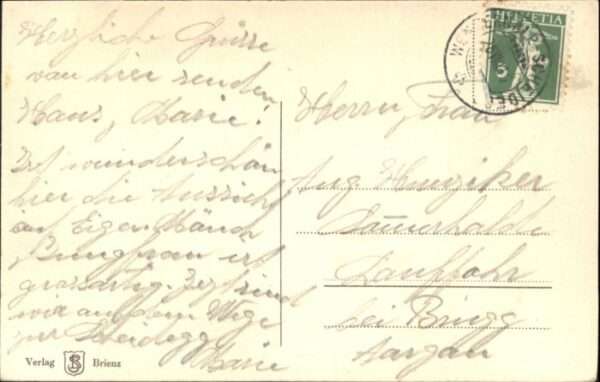 Herzliche Grüsse
von hier senden
Hans, Marie!
Ist wunderschön
hier die Aussicht
auf Eiger, Mönch
Jungfrau ist
grossartig. Jetzt sind
wir auf dem Wege
zur Scheidegg
Marie
HELVETIA
5
Herrn, Frau
Aug Hunziker
Lauffohr
bei Brugg
Aargau
Verlag SB Brienz